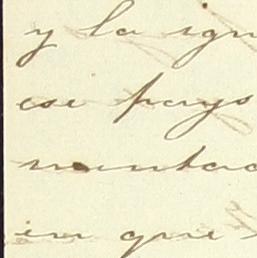 y la ign
ese pays
mentac
en que